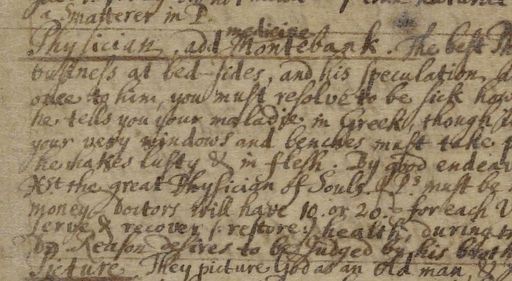 a Smatterer in P.
medicine
Physician, add Montebank. The best
business at bed-sides, and his speculation
once to him, you must resolve to be sick
he tells you your maladie in Greek, though
your very windows and benches must take
he makes lusty & in flesh. By good
the great Physician of Souls. must be
money. Doctors will have 10. or 20. for each
serve & recover (restore) health, during
Reason desires to be judged by his
Picture. They picture God as an old man, &